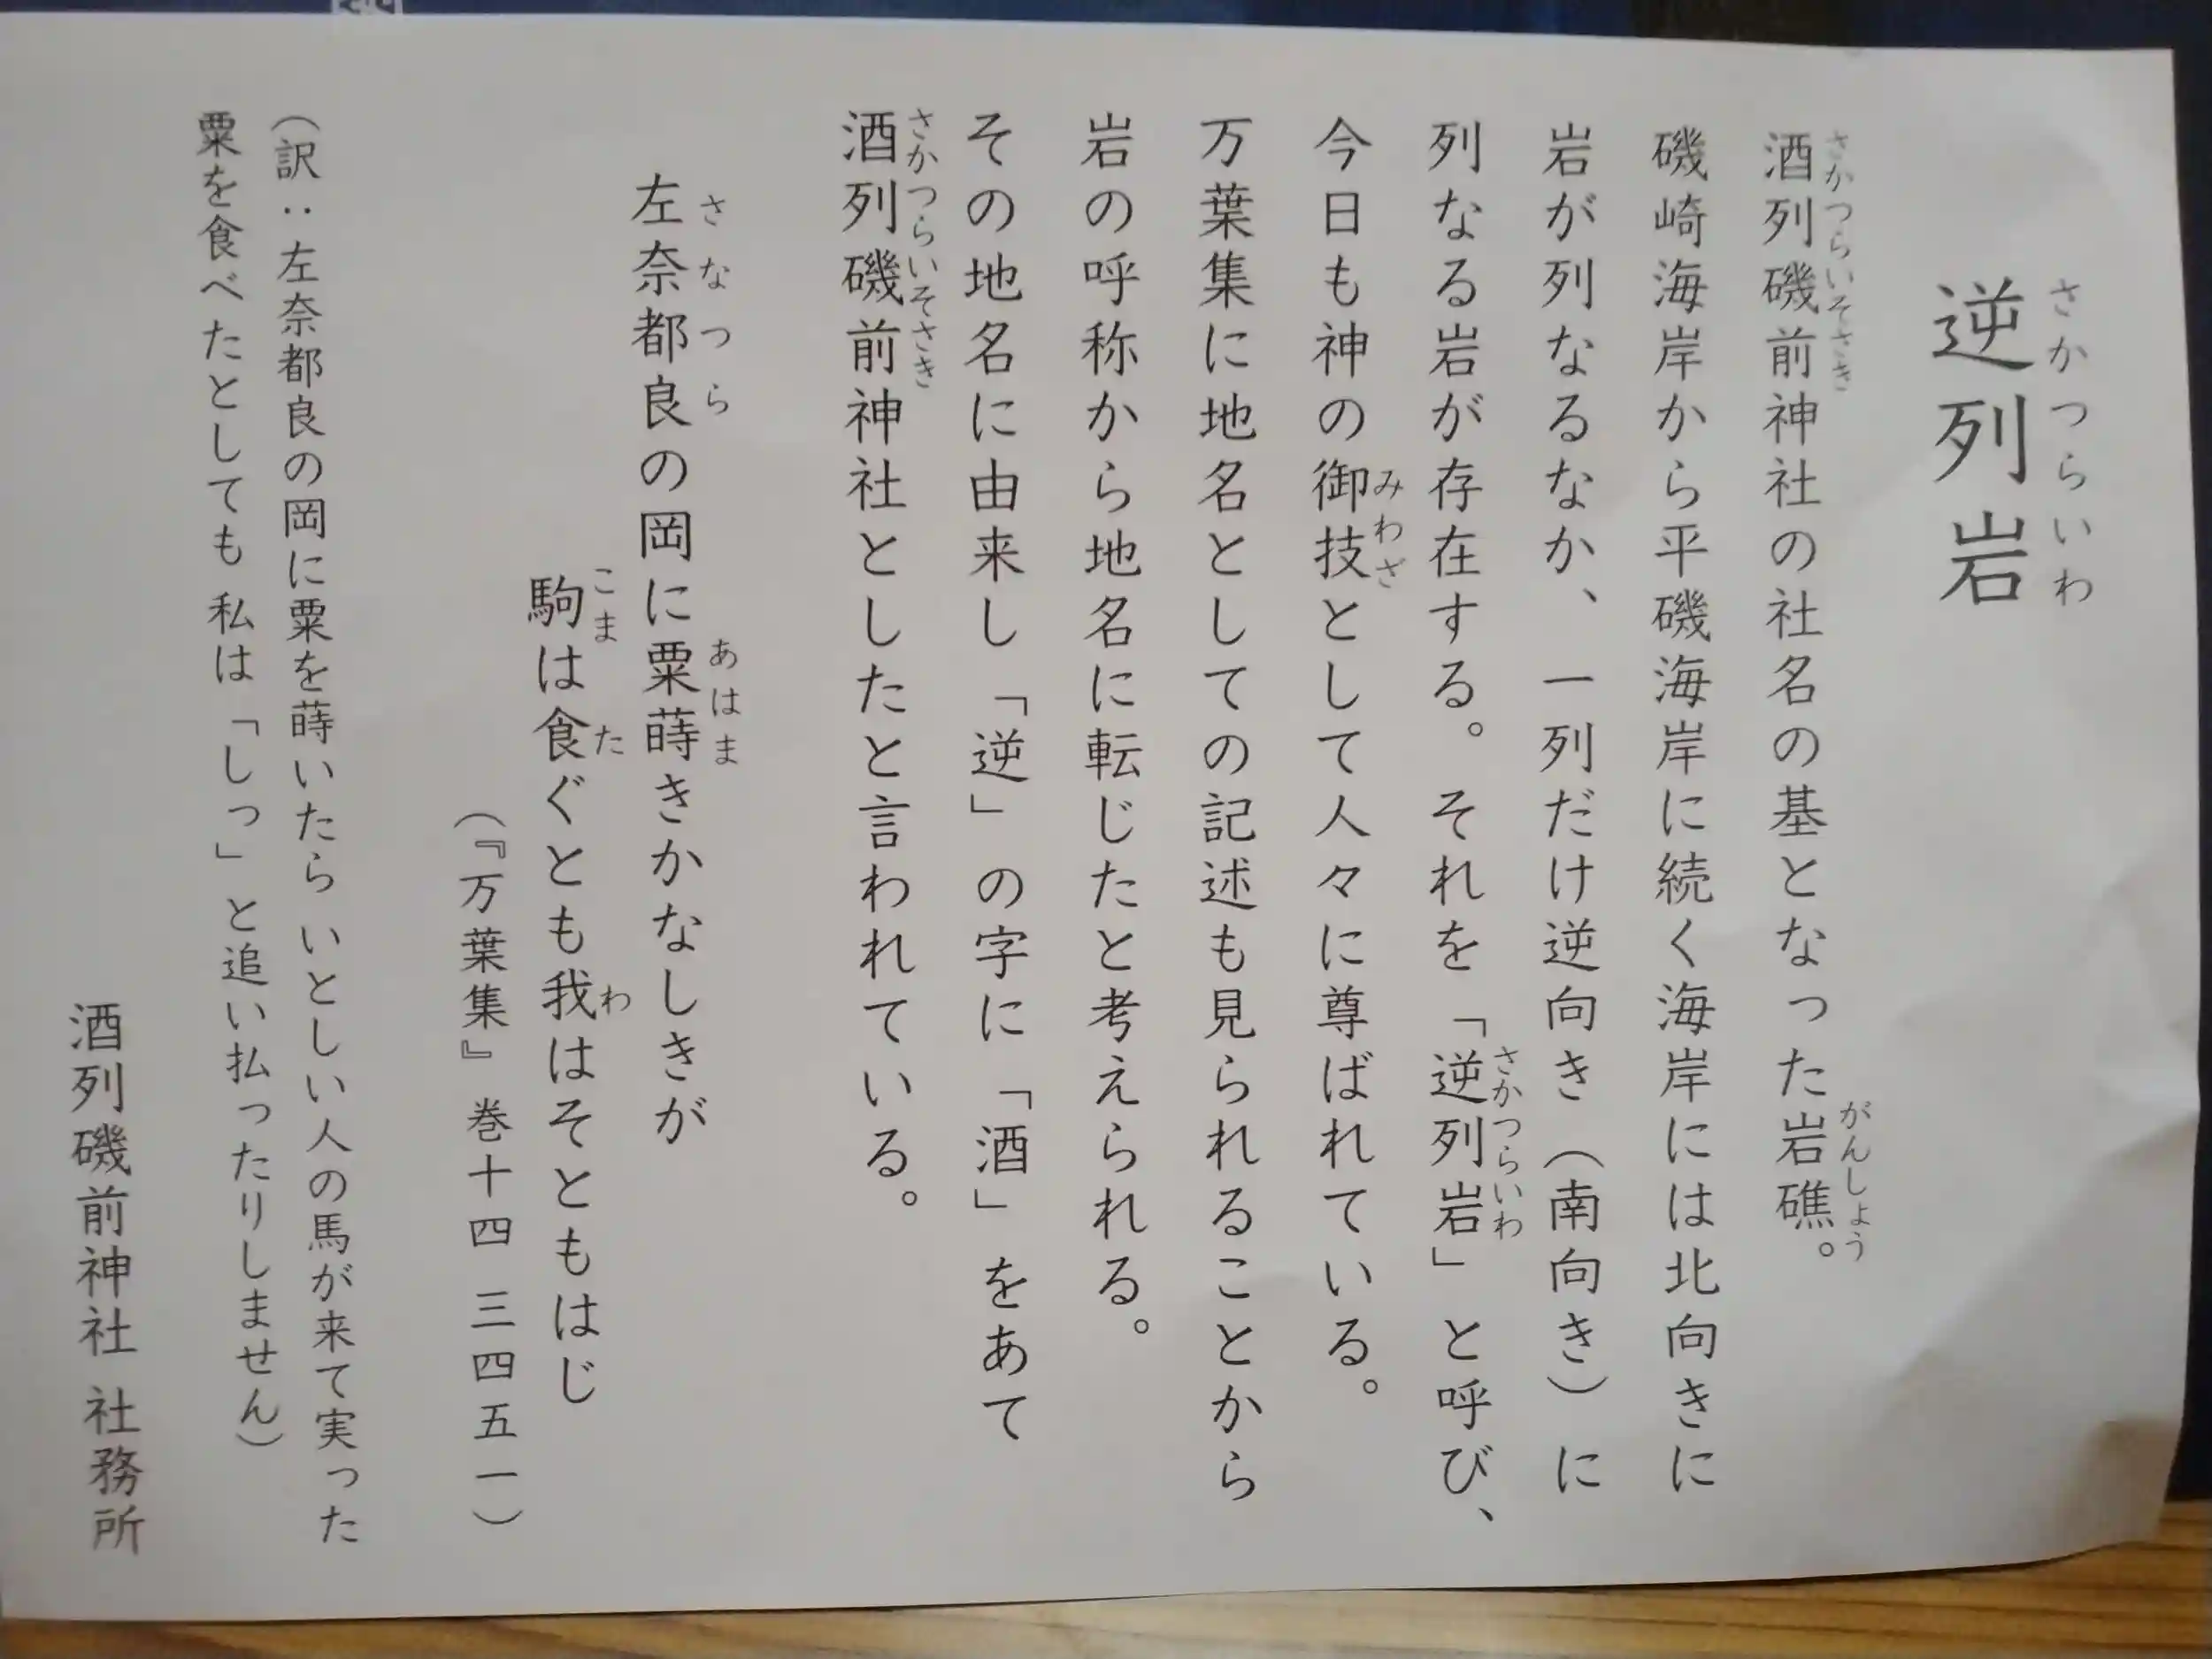 逆列岩
さかつらいわ
酒列磯前神社の社名の基となった岩礁。
さかつらいそさき
がんしょう
磯崎海岸から平磯海岸に続く海岸には北向きに
岩が列なるなか、一列だけ逆向き（南向き）に
列なる岩が存在する。それを「逆列岩」と呼び、
さかつらいわ
今日も神の御技として人々に尊ばれている。
みわざ
万葉集に地名としての記述も見られることから
岩の呼称から地名に転じたと考えられる。
その地名に由来し「逆」の字に「酒」をあて
酒列磯前神社としたと言われている。
さかつらいそさき
左奈都良の岡に粟蒔きかなしきが
さなつら
あはま
駒は食ぐとも我はそともはじ
こま
た
わ
（『万葉集』巻十四 三四五一）
（訳：左奈都良の岡に粟を蒔いたら いとしい人の馬が来て実った
粟を食べたとしても 私は「しっ」と追い払ったりしません）
酒列磯前神社 社務所